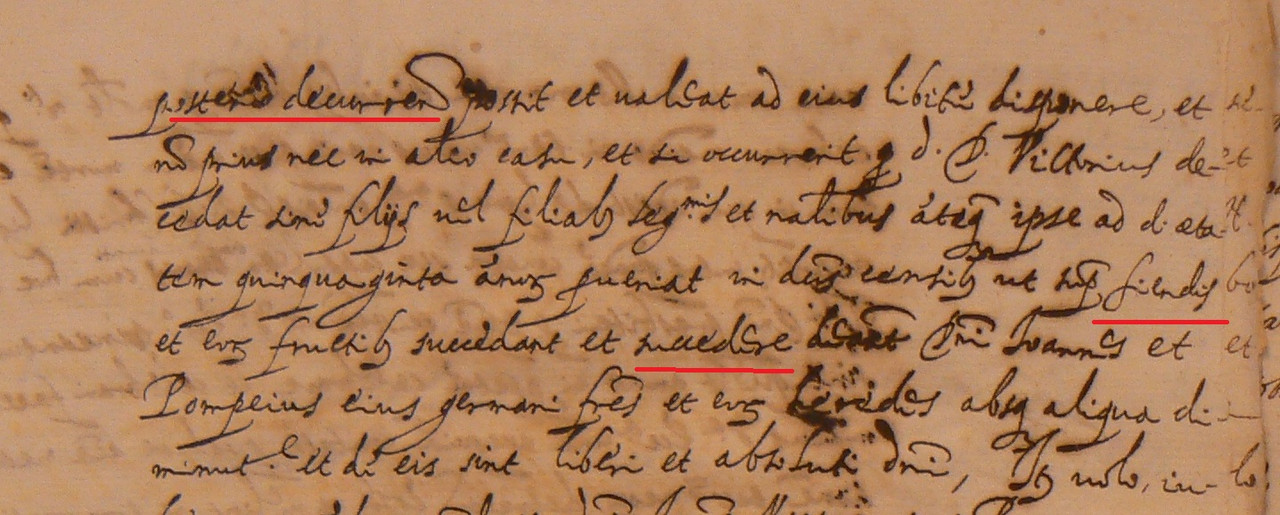 decurren possit et valeat ad eius libitu disponere, et
no prius nec in alio casu, et si occurrerit q d. P. Victorius de-
cedat sine filijs vel filiab leg.mis et natibus ateq ipse ad d. æta-
tem quinquaginta anor pueniat in dictis censib ut sup fiendis
et eor fructib succedant et succedere Joannes et
Pompeius eius germani fres et eor heredes absq aliqua di-
minut.e et de eis sint liberi et absoluti dni, It volo, iu-